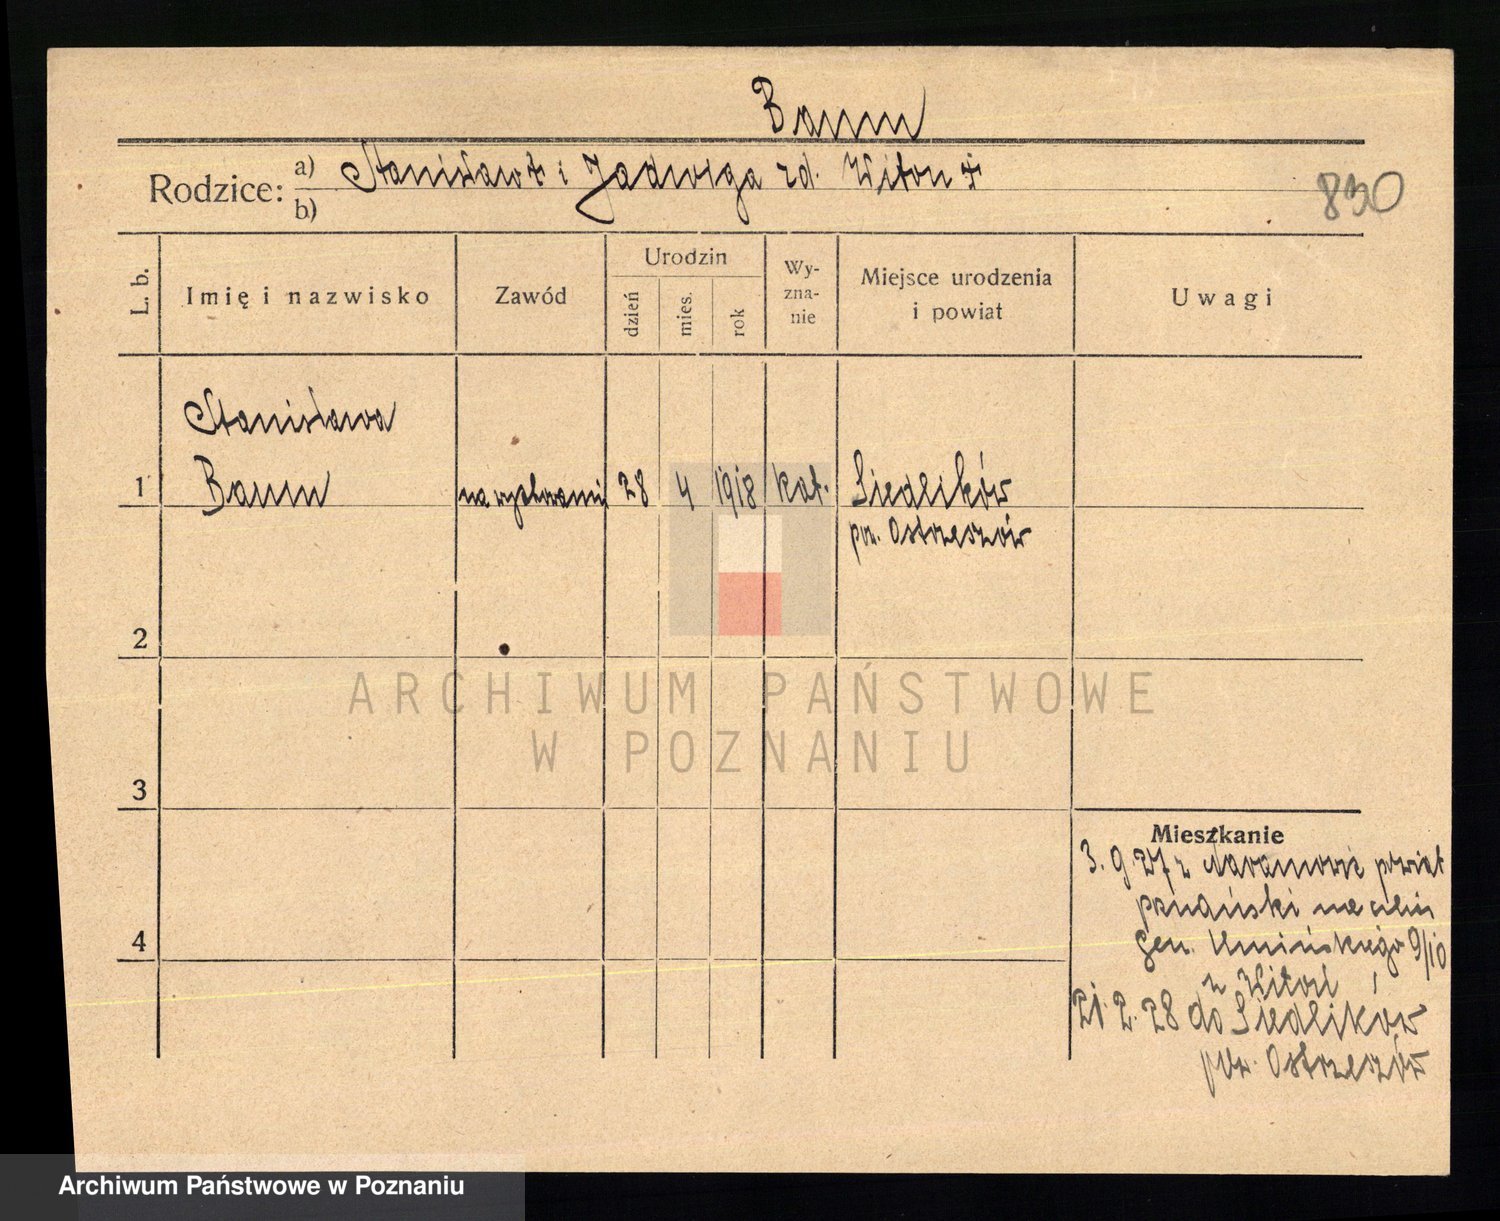 Baum
Rodzice: a) Stanisław † i Jadwiga zd. Witoń †
b)
830
L. b.
Imię i nazwisko
Zawód
Urodzin
dzień
mies.
rok
Wy-
zna-
nie
Miejsce urodzenia
i powiat
Uwagi
Stanisława
1 Baum na wychowaniu 28 4 1918 kat. Siedlików
pow. Ostrzeszów
2
3
4
Mieszkanie
3. 9 27 z Naramowic powiat
poznański na ulicę
gen. Umińskiego 9/10
u Witoń
21. 2. 28 do Siedlików
pow. Ostrzeszów
ARCHIWUM PAŃSTWOWE
W POZNANIU
Archiwum Państwowe w Poznaniu